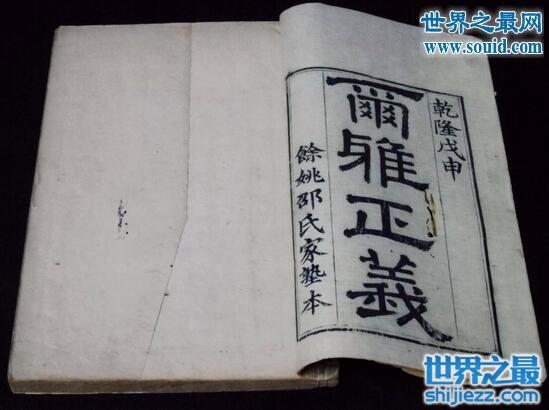 世界之最网
www.souid.com
乾隆戊申
爾雅正義
餘姚邵氏家塾本
世界之最
shijiezz.com